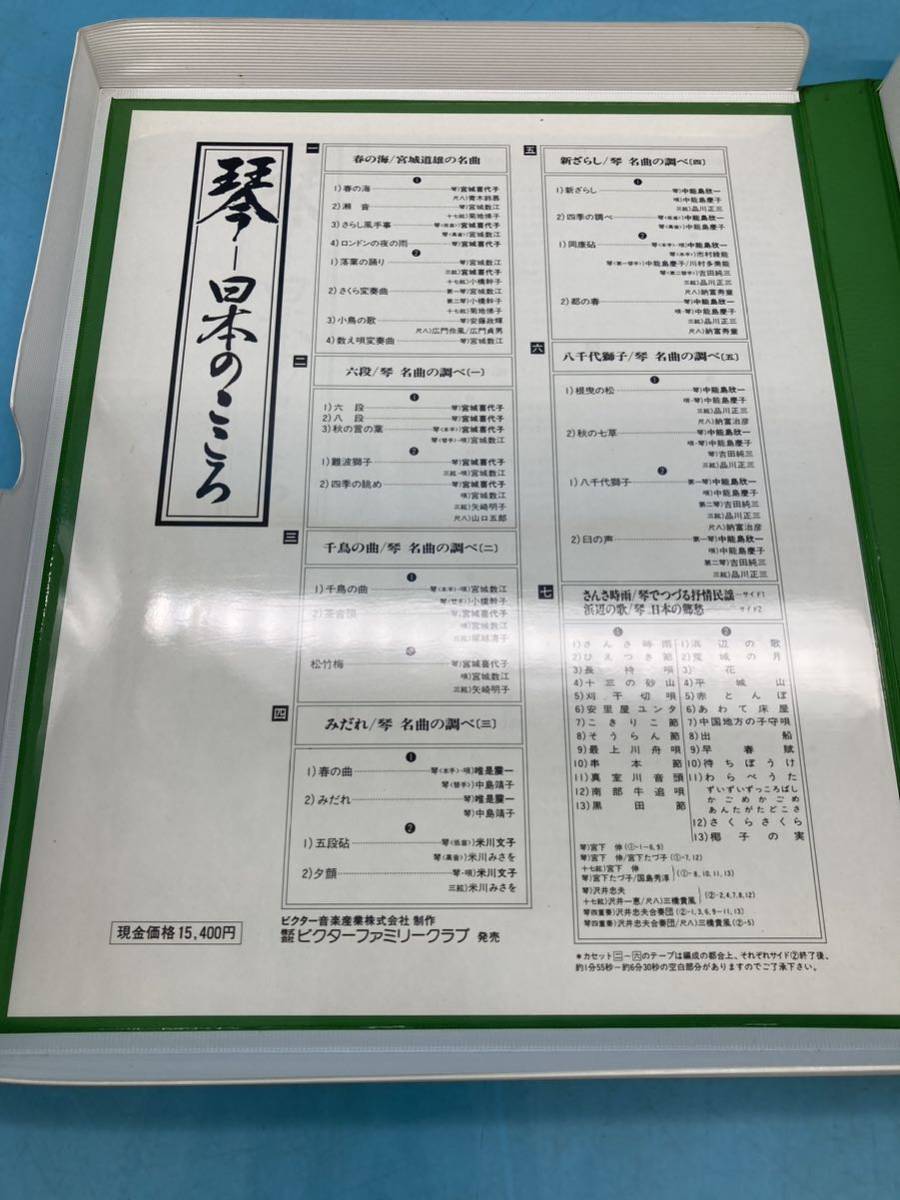 琴―日本のこころ
一
春の海/宮城道雄の名曲
❶
1)春の海 琴)宮城喜代子
尺八)青木鈴慕
2)瀬音 琴)宮城数江
十七絃)菊地悌子
3)さらし風手事 琴(低音))宮城喜代子
琴(高音))宮城数江
4)ロンドンの夜の雨 琴)宮城喜代子
❷
1)落葉の踊り 琴)宮城数江
三絃)宮城喜代子
十七絃)小橋幹子
2)さくら変奏曲 第一琴)宮城数江
第二琴)小橋幹子
十七絃)菊地悌子
3)小鳥の歌 琴)安藤政輝
尺八)広門伶風/広門貞男
4)数え唄変奏曲 琴)宮城数江
二
六段/琴 名曲の調べ(一)
❶
1)六段 琴)宮城喜代子
2)八段 琴)宮城喜代子
3)秋の言の葉 琴(本手))宮城喜代子
琴(替手)・唄)宮城数江
❷
1)難波獅子 琴)宮城喜代子
三絃・唄)宮城数江
2)四季の眺め 琴)宮城喜代子
唄)宮城数江
三絃)矢崎明子
尺八)山口五郎
三
千鳥の曲/琴 名曲の調べ(二)
❶
1)千鳥の曲 琴(本手)・唄)宮城数江
琴(替手))小橋幹子
2)茶音頭 琴)宮城喜代子
唄)宮城数江
❷
松竹梅 琴)宮城喜代子
唄)宮城数江
三絃)矢崎明子
四
みだれ/琴 名曲の調べ(三)
❶
1)春の曲 琴(本手)・唄)唯是震一
琴(替手))中島靖子
2)みだれ 琴)唯是震一
琴)中島靖子
❷
1)五段砧 琴(低音))米川文子
琴(高音))米川みさを
2)夕顔 琴・唄)米川文子
三絃)米川みさを
五
新ざらし/琴 名曲の調べ(四)
❶
1)新ざらし 琴)中能島欣一
唄)中能島慶子
三絃)品川正三
2)四季の調べ 琴(低音))中能島欣一
琴(高音))中能島慶子
❷
1)岡康砧 琴(本手)・唄)中能島欣一
琴(本手))市村綾能
琴(第一替手))中能島慶子/川村多美能
琴(第二替手))吉田純三
三絃)品川正三
尺八)納富寿童
2)都の春 琴)中能島欣一
唄)中能島慶子
三絃)品川正三
尺八)納富寿童
六
八千代獅子/琴 名曲の調べ(五)
❶
1)根曳の松 琴)中能島欣一
唄・琴)中能島慶子
三絃)品川正三
尺八)納富治彦
2)秋の七草 琴)中能島欣一
唄・琴)中能島慶子
琴)吉田純三
三絃)品川正三
❷
1)八千代獅子 第一琴)中能島欣一
唄)中能島慶子
第二琴)吉田純三
三絃)品川正三
尺八)納富治彦
2)臼の声 第一琴)中能島欣一
唄)中能島慶子
第二琴)吉田純三
三絃)品川正三
七
さんさ時雨/琴でつづる抒情民謡―サイド1
浜辺の歌/琴、日本の郷愁―サイド2
❶
1)さんさ時雨
2)ひえつき節
3)長持唄
4)十三の砂山
5)刈干切唄
6)安里屋ユンタ
7)こきりこ節
8)そうらん節
9)最上川舟唄
10)串本節
11)真室川音頭
12)南部牛追唄
13)黒田節
❷
1)浜辺の歌
2)荒城の月
3)花
4)平城山
5)赤とんぼ
6)あわて床屋
7)中国地方の子守唄
8)出船
9)早春賦
10)待ちぼうけ
11)わらべうた
ずいずいずっころばし
かごめかごめ
あんたがたどこさ
12)さくらさくら
13)椰子の実
琴)宮下伸(①-1~6,9)
琴)宮下伸/宮下たづ子(①-7,12)
十七絃)宮下伸
琴)宮下たづ子/国島秀淳 (①-8,10,11,13)
琴)沢井忠夫
十七絃)沢井一恵/尺八)三橋貴風 (②-2,4,7,8,12)
琴四重奏)沢井忠夫合奏団(②-1,3,6,9~11,13)
琴四重奏)沢井忠夫合奏団/尺八)三橋貴風(②-5)
*カセット二~六のテープは編成の都合上、それぞれサイド②終了後、
約1分55秒~約6分30秒の空白部分がありますのでご了承下さい。
現金価格15,400円
ビクター音楽産業株式会社 制作
株式会社ビクターファミリークラブ 発売